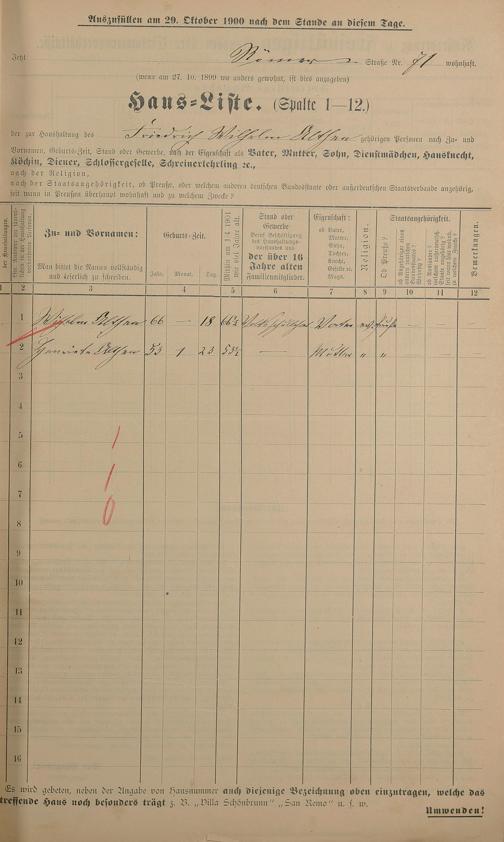 Auszufüllen am 29. Oktober 1900 nach dem Stande an diesem Tage.
Jetzt Römer Straße Nr. 71 wohnhaft.
(wenn am 27. 10. 1899 wo anders gewohnt, ist dies angegeben)
Haus-Liste. (Spalte 1—12.)
der zur Haushaltung des Friedrich Wilhelm Althen gehörigen Personen nach Zu- und
Vornamen, Geburts-Zeit, Stand oder Gewerbe, nach der Eigenschaft als Vater, Mutter, Sohn, Dienstmädchen, Hausknecht,
Köchin, Diener, Schlossergeselle, Schreinerlehrling ꝛc.,
nach der Religion,
nach der Staatsangehörigkeit, ob Preuße, oder welchem anderen deutschen Bundesstaate oder außerdeutschen Staatsverbande angehörig,
seit wann in Preußen überhaupt wohnhaft und zu welchem Zwecke?
Zu- und Vornamen:
Man bittet die Namen vollständig
und leserlich zu schreiben.
Geburts-Zeit.
Jahr. Monat. Tag.
Stand oder
Gewerbe
der über 16
Jahre alten
Familienmitglieder.
Eigenschaft:
ob Vater,
Mutter,
Sohn,
Tochter,
Knecht,
Geselle ꝛc.
Magd.
Religion.
Staatsangehörigkeit.
Ob Preuße?
Bemerkungen.
1 2 3 4 5 6 7 8 9 10 11 12
1 Wilhelm Althen 66 18 Vater
2 Althen 53 1 23 Mutter " "
3
4
5
6
7
8
9
10
11
12
13
14
15
16
1
1
0
Es wird gebeten, neben der Angabe von Hausnummer auch diejenige Bezeichnung oben einzutragen, welche das
treffende Haus noch besonders trägt z. B. „Villa Schönbrunn" „San Remo" u. s. w.
Umwenden!